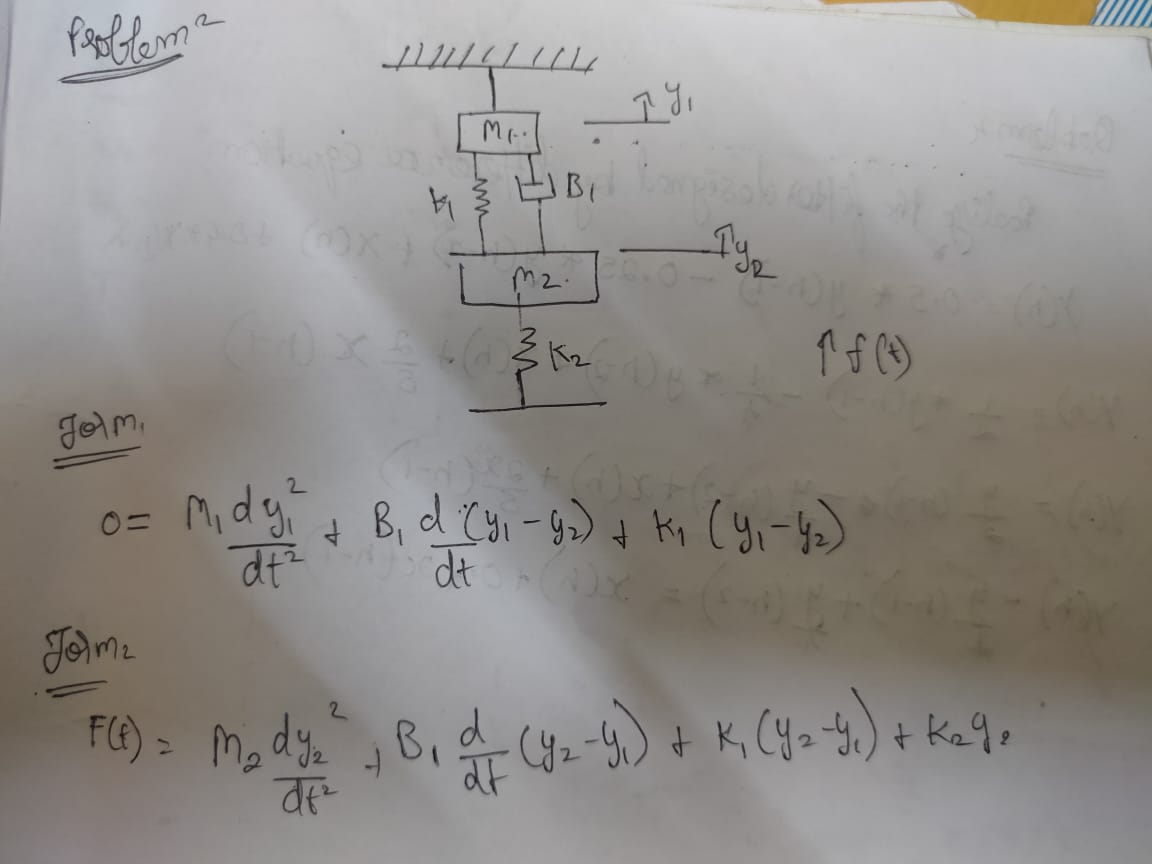 Problem 2
y₁
M₁
K₁
B₁
y₂
M₂
K₂
↑ f(t)
For M₁
0 = M₁ dy₁²/dt² + B₁ d/dt (y₁ - y₂) + K₁ (y₁ - y₂)
For M₂
F(t) = M₂ dy₂²/dt² + B₁ d/dt (y₂ - y₁) + K₁ (y₂ - y₁) + K₂ y₂